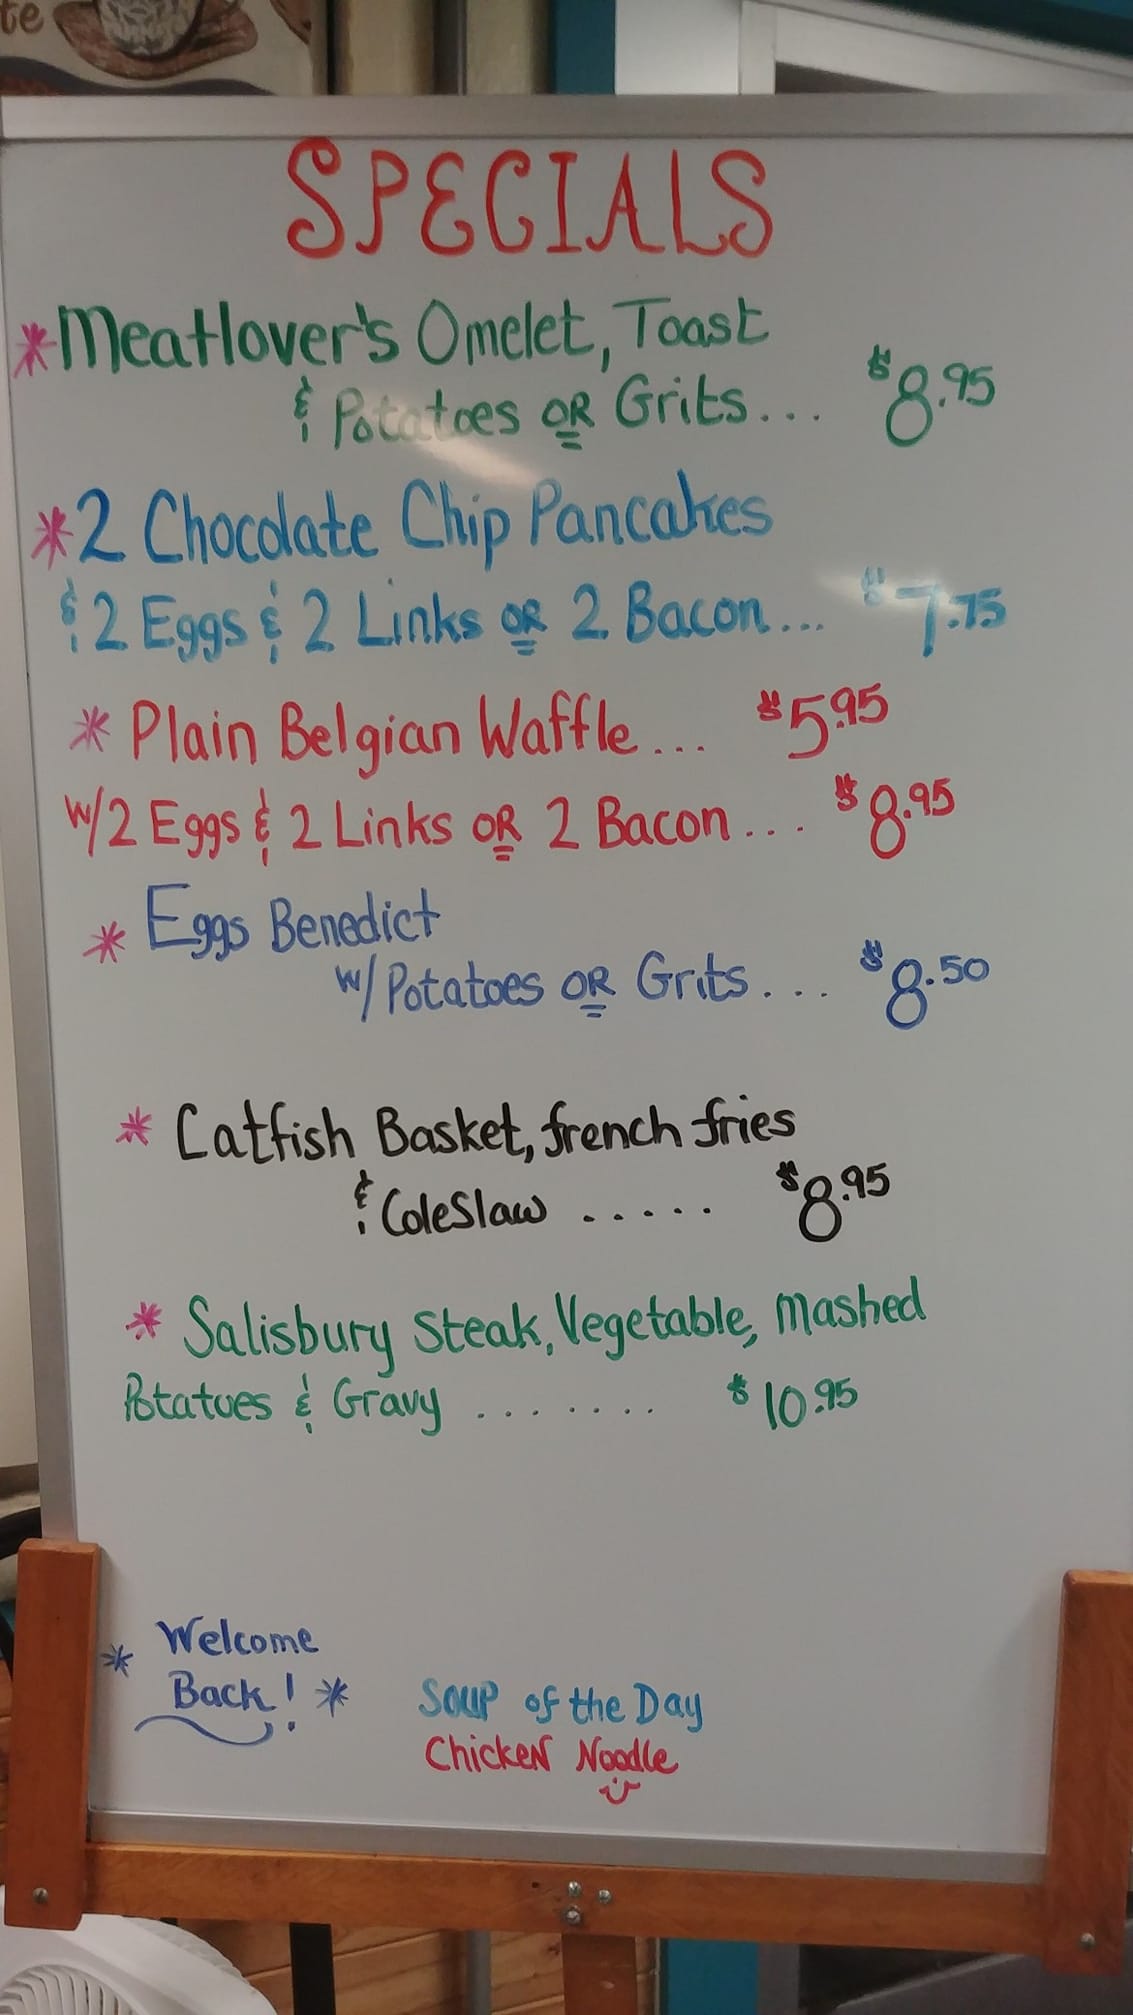 te
SPECIALS
*Meatlover's Omelet, Toast
& Potatoes OR Grits... $8.95
*2 Chocolate Chip Pancakes
& 2 Eggs & 2 Links OR 2 Bacon... $7.75
* Plain Belgian Waffle... $5.95
w/2 Eggs & 2 Links OR 2 Bacon... $8.95
* Eggs Benedict
w/ Potatoes OR Grits... $8.50
* Catfish Basket, french fries
& ColeSlaw ..... $8.95
* Salisbury Steak, Vegetable, Mashed
Potatoes & Gravy ....... $10.95
* Welcome
Back! *
Soup of the Day
Chicken Noodle